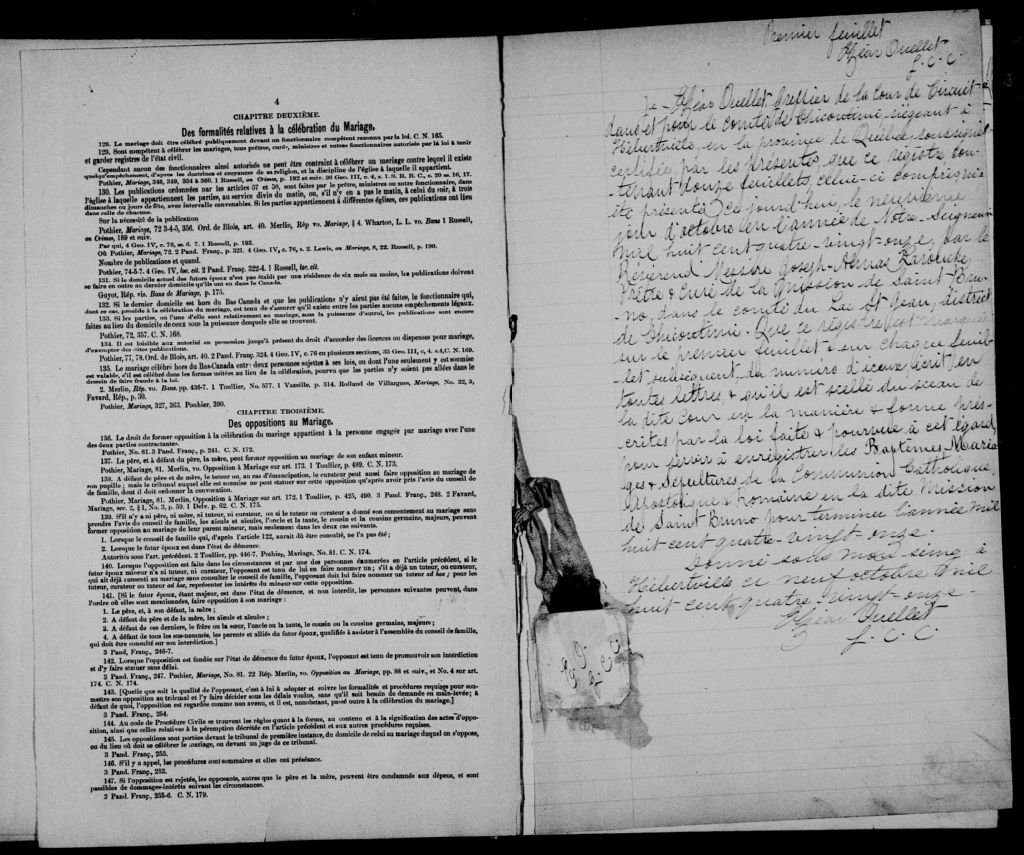 4
CHAPITRE DEUXIÈME.
Des formalités relatives à la célébration du Mariage.
128. Le mariage doit être célébré publiquement devant un fonctionnaire compétent reconnu par la loi. C. N. 165.
129. Sont compétents à célébrer les mariages, tous prêtres, curés, ministres et autres fonctionnaires autorisés par la loi à tenir
et garder registres de l'état civil.
Cependant aucun des fonctionnaires ainsi autorisés ne peut être contraint à célébrer un mariage contre lequel il existe
quelqu'empêchement, d'après les doctrines et croyances de sa religion, et la discipline de l'église à laquelle il appartient.
Pothier, Mariage, 346, 349, 354 à 360. 1 Russell, on Crimes, p. 192 et suiv. 36 Geo. III, c. 4, s. 1. S. R. B. C., c. 20 ss. 16, 17.
130. Les publications ordonnées par les articles 57 et 58, sont faites par le prêtre, ministre ou autre fonctionnaire, dans
l'église à laquelle appartiennent les parties, au service divin du matin, ou, s'il n'y en a pas le matin, à celui du soir, à trois
dimanches ou jours de fête, avec intervalle convenables. Si les parties appartiennent à différentes églises, ces publications ont lieu
dans celle de chacune.
Sur la nécessité de la publication
Pothier, Mariage, 72 3-4-5, 356. Ord. de Blois, art. 40. Merlin, Rép vo. Mariage, § 4. Wharton, L. L. vo. Bans 1 Russell,
on Crimes, 189 et suiv.
Par qui, 4 Geo. IV, c. 76, ss. 6. 7. 1 Russell, p. 193.
Où Pothier, Mariage, 72. 2 Pand. Franç., p. 321. 4 Geo. IV, c. 76, s. 2. Lewis, on Mariage, 8, 22. Russell, p. 190.
Nombre de publications et quand.
Pothier, 74-5-7. 4 Geo. IV, loc. cit. 2 Pand. Franç. 322-4. 1 Russell, loc. cit.
131. Si le domicile actuel des futurs époux n'est pas établi par une résidence de six mois au moins, les publications doivent
se faire en outre au dernier domicile qu'ils ont eu dans le Canada.
Guyot, Rép. vis. Bans de Mariage, p. 175.
132. Si le dernier domicile est hors du Bas Canada et que les publications n'y aient pas été faites, le fonctionnaire qui,
dans ce cas, procède à la célébration du mariage, est tenu de s'assurer qu'il existe entre les parties aucuns empêchements légaux.
133. Si les parties, ou l'une d'elle sont relativement au mariage, sous la puissance d'autrui, les publications sont encore
faites au lieu du domicile de ceux sous la puissance desquels elle se trouvent.
Pothier, 72, 357. C. N. 168.
134. Il est loisible aux autorités en possession jusqu'à présent du droit d'accorder des licences ou dispenses pour mariage,
d'exempter des dites publications.
Pothier, 77, 78. Ord. de Blois, art. 40. 2 Pand. Franç. 324. 4 Geo. IV, c. 76 en plusieurs sections, 35 Geo. III, c, 4. s.4, C. N. 169.
135. Le mariage célébré hors du Bas-Canada entre deux personnes sujettes à ses lois, ou dont l'une seulement y est soumise
est valable, s'il est célébré dans les formes usitées au lieu de la célébration, pourvu que les parties n'y soient pas allées dans le
dessein de faire fraude à la loi.
2. Merlin, Rép. vo. Bans. pp. 436-7. 1 Toullier, No. 577. 1 Vazeille. p. 314. Rolland de Villargues, Mariage, No. 22, 3,
Favard, Rép., p. 39.
Pothier, Mariage, 327, 363. Pouhier, 390.
CHAPITRE TROISIÈME.
Des oppositions au Mariage.
136. Le droit de former opposition à la célébration du mariage appartient à la personne engagée par mariage avec l'une
des deux parties contractantes.
Pothier, No. 81. 3 Pand Franç., p. 241. C. N. 172.
137. Le père, et à défaut du père, la mère, peut former opposition au mariage de son enfant mineur.
Pothier, Mariage, 81. Merlin, vo. Opposition à Mariage sur art. 173. 1 Toullier, p. 489. C. N. 173.
138. A défaut de père et de mère, le tuteur ou, au cas d'émancipation, le curateur peut aussi faire opposition au mariage de
son pupille; mais le tribunal auquel elle est soumise ne peut statuer sur cette opposition qu'après avoir pris l'avis du conseil de
famille, dont il doit ordonner la convocation.
Pothier, Mariage, 81. Merlin, Opposition à Mariage sur art. 172. 1 Toullier, p. 425, 490. 3 Pand. Franç., 248. 2 Favard,
Mariage, sec. 2, § 1, No. 3, p. 59. 1 Delv. p. 62. C. N. 175.
139. S'il n'y a ni père, ni mère, ni tuteur, ni curateur, ou si le tuteur ou curateur a donné son consentement au mariage sans
prendre l'avis du conseil de famille, les aïeuls et aïeules, l'oncle et la tante, le cousin et la cousine germains, majeurs, peuvent
former opposition au mariage de leur parent mineur, mais seulement dans les deux cas suivants.
1. Lorsque le conseil de famille qui, d'après l'article 122, aurait dû être consulté, ne l'a pas été;
2. Lorsque le futur époux est dans l'état de démence.
Autorités sous l'art. précédent. 2 Toullier, pp. 446-7. Pothier, Mariage, No. 81. C. N. 174.
140. Lorsque l'opposition est faite dans les circonstances et par une des personnes énumérées en l'article précédent, si le
futur époux mineur n'a ni tuteur, ni curateur, l'opposant est tenu de lui en faire nommer un; s'il a déjà un tuteur, ou curateur,
qui ait déjà consenti au mariage sans consulter le conseil de famille, l'opposant doit lui faire nommer un tuteur ad hoc; pour les
tuteur, curateur ou tuteur ad hoc, représenter les intérêts du mineur sur cette opposition.
141. [Si le futur époux, étant majeur, est dans l'état de démence, et non interdit, les personnes suivantes peuvent, dans
l'ordre où elles sont mentionnées, faire opposition à son mariage:
1. Le père, et, à son défaut, la mère;
2. A défaut du père et de la mère, les aïeuls et aïeules;
3. A défaut de ces derniers, le frère ou la sœur, l'oncle ou la tante, le cousin ou la cousine germains, majeurs;
4. A défaut de tous les sus-nommés, les parents et alliés du futur époux, qualifiés à assister à l'assemblée du conseil de famille,
qui doit être consulté sur son interdiction.]
3 Pand, Franç., 246-7.
142. Lorsque l'opposition est fondée sur l'état de démence du futur époux, l'opposant est tenu de promouvoir son interdiction
et d'y faire statuer sans délai.
3 Pand. Franç., 247. Pothier, Mariage, No. 81. 22 Rép. Merlin, vo. Opposition au Mariage, pp. 88 et suiv., et No. 4 sur art.
174. C. N. 174.
143. [Quelle que soit la qualité de l'opposant, c'est à lui à adopter et suivre les formalités et procédures requises pour sou-
mettre son opposition au tribunal et l'y faire décider sous les délais voulus, sans qu'il soit besoin de demande en main-levée; à
défaut de quoi, l'opposition est regardée comme non avenu, et il est, nonobstant, passé outre à la célébration du mariage.]
3 Pand. Franç., 254.
144. Au code de Procédure Civile se trouvent les règles quant à la forme, au contenu et à la signification des actes d'oppo-
sition, ainsi que celles relatives à la péremption décrétée en l'article précédent et aux autres procédures requises.
145. Les oppositions sont portées devant le tribunal de première instance, du domicile de celui au mariage duquel on s'oppose,
ou du lieu où doit se célébrer le mariage, ou devant un juge de ce tribunal.
3 Pand. Franç., 253.
146. S'il y a appel, les procédures sont sommaires et elles ont préséance.
3 Pand. Franç., 253.
147. Si l'opposition est rejetée, les opposants, autres que le père et la mère, peuvent être condamnés aux dépens, et sont
passibles de dommages-intérêts suivant les circonstances.
3 Pand. Franç., 255-6. C. N. 179.
Premier feuillet
Elzéar Ouellet
G. C. C.
Je Elzéar Ouellet Greffier de la Cour de Circuit
dans et pour le comté de Chicoutimi, siégeant à
Hébertville en la province de Québec soussigné
certifie par les présentes que ce registre con-
tenant douze feuillets, celui-ci compris, a
été présenté ce jourd'hui, le neuvième
jour d'octobre en l'année de Notre-Seigneur
Mil huit cent quatre-vingt-onze, par le
Révérend Messire Joseph
Prêtre & Curé de la Mission de Saint Bru-
no, dans le comté du Lac St Jean, district
de Chicoutimi. Que ce registre est marqué
sur le premier feuillet & sur chaque feuil-
let subséquent, du numéro d'iceux écrit en
toutes lettres, & qu'il est scellé du sceau de
la dite Cour en la manière & forme pres-
crites par la loi faite & pourvue à cet égard,
pour servir à enregistrer les Baptêmes, Maria-
ges & Sépultures de la Communion Catholique,
Apostolique & Romaine en la dite Mission
de Saint Bruno pour terminer l'année mil
huit cent quatre-vingt-onze
Donné sous mon seing à
Hébertville ce neuf octobre mil
huit cent quatre-vingt-onze-
Elzéar Ouellet
G. C. C
E. O.
G C C